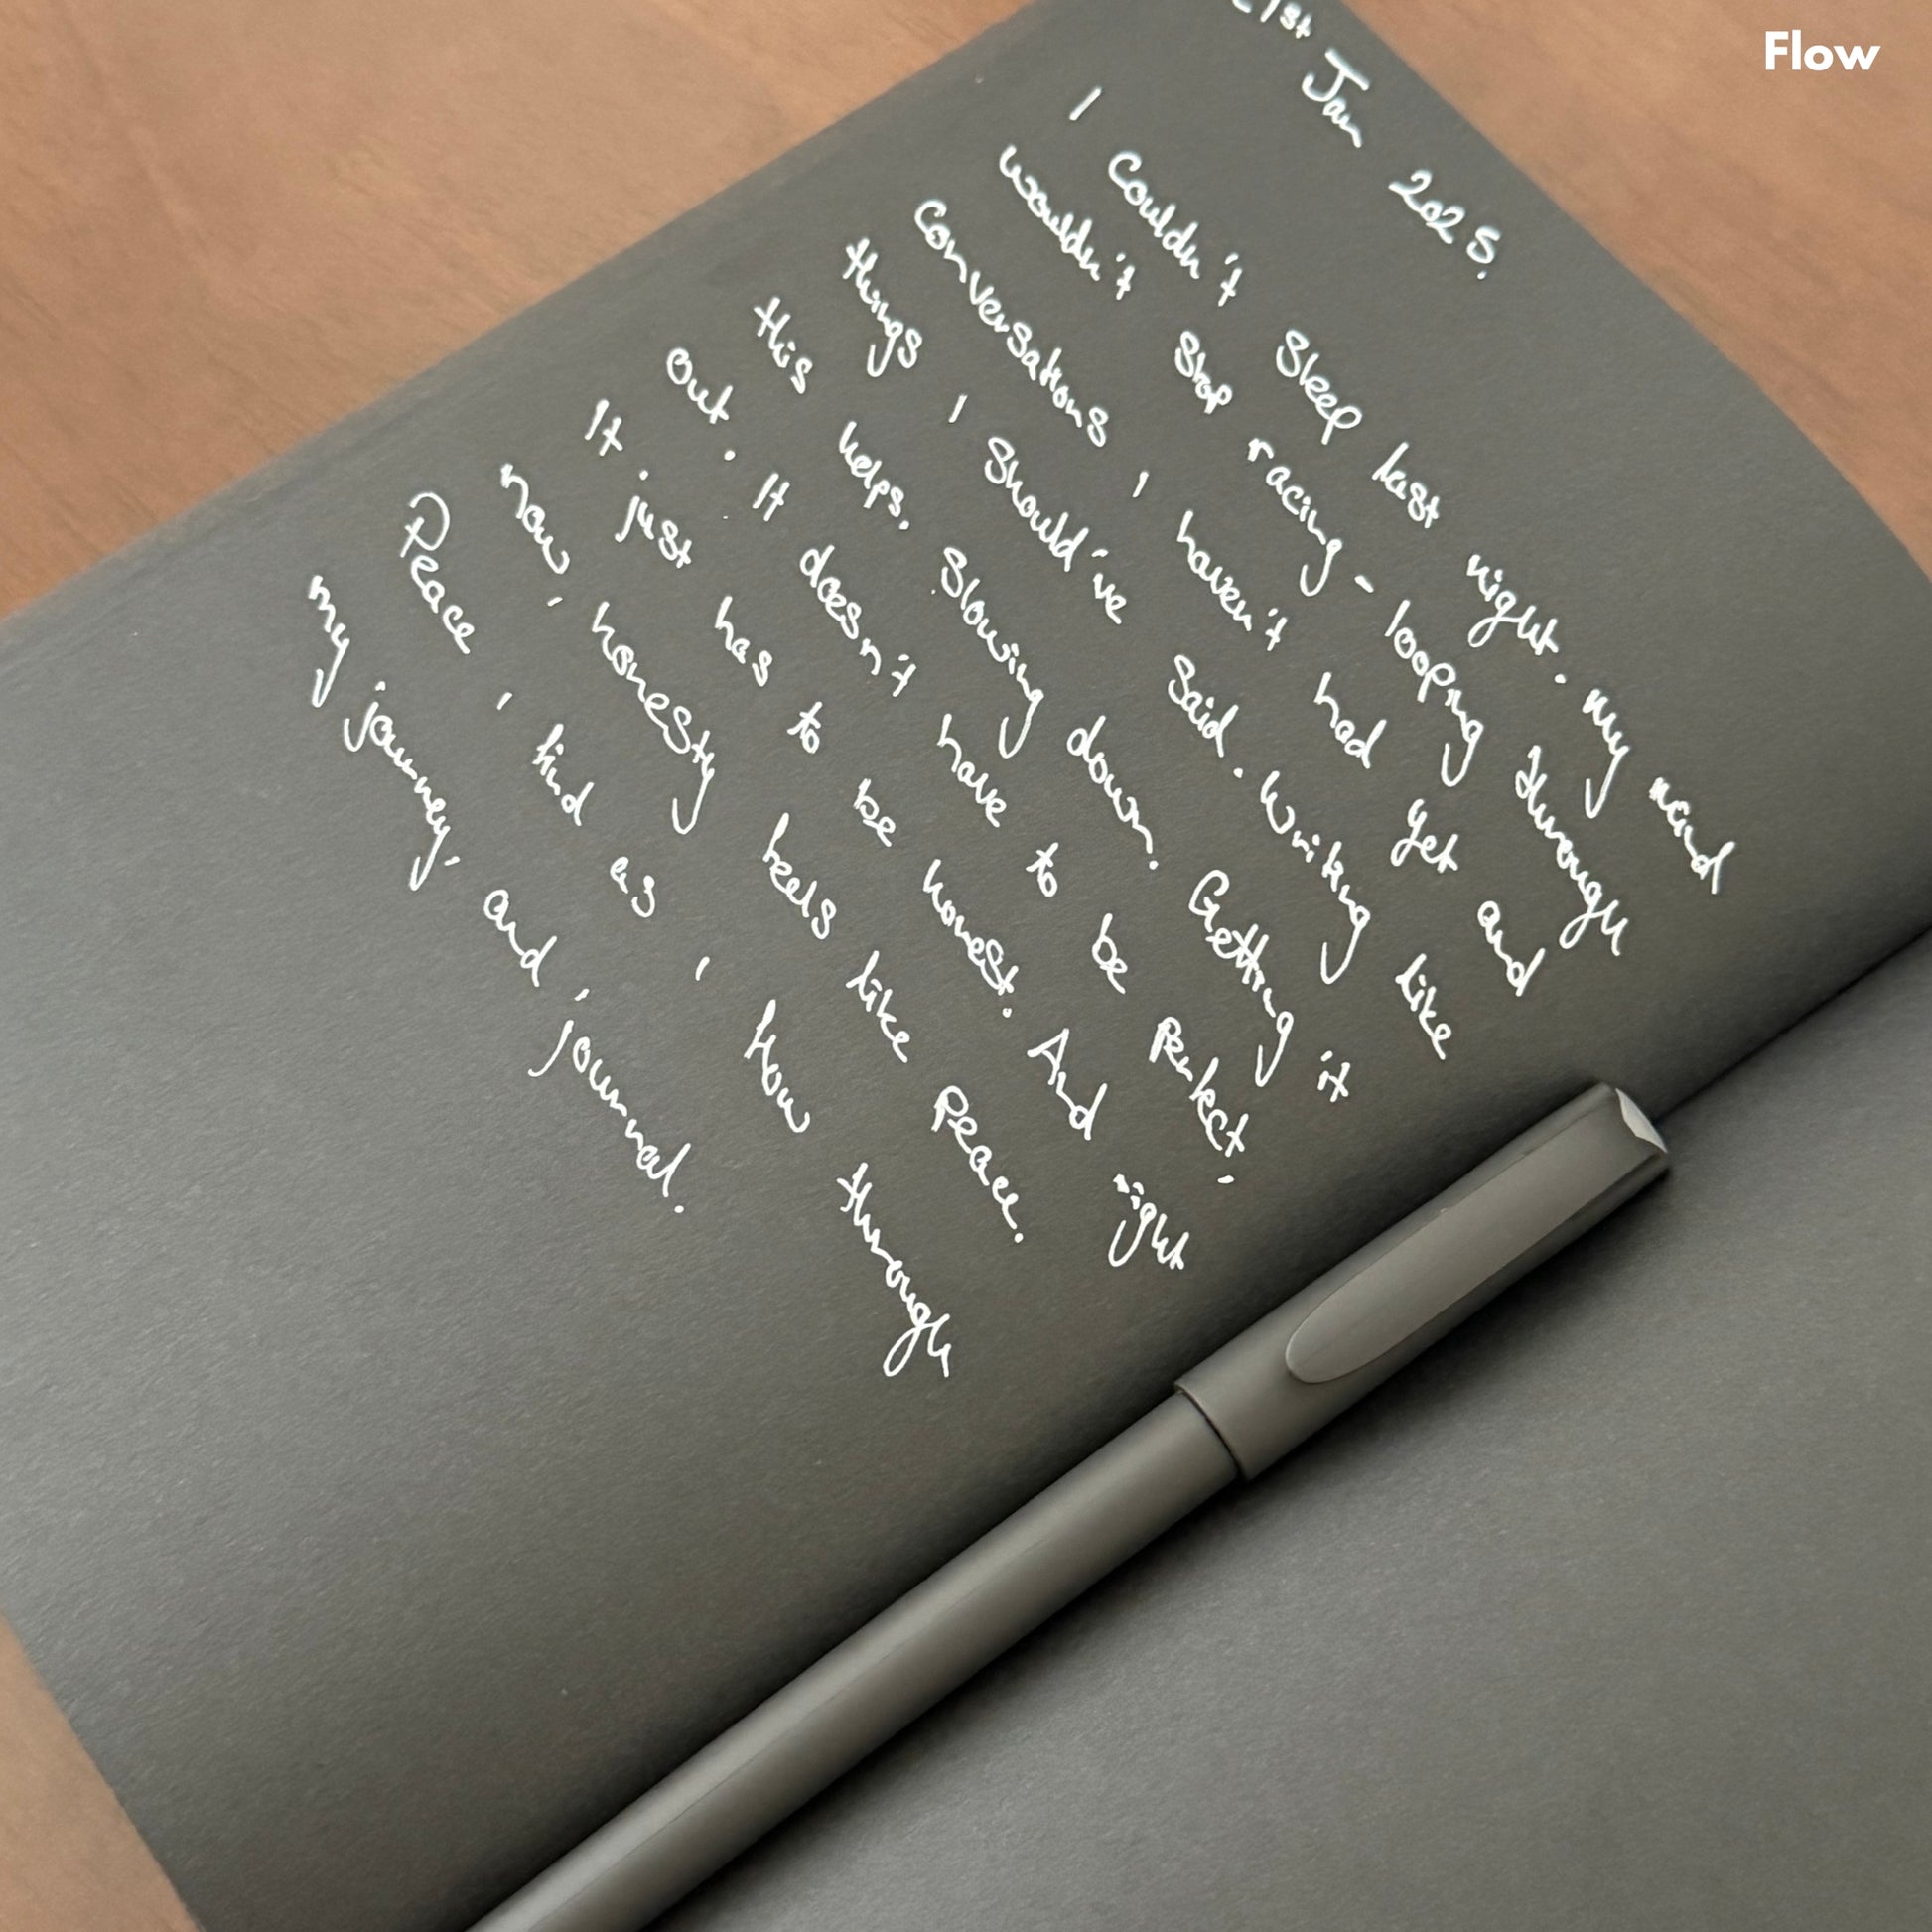 Flow
21st Jan 2025.
I couldn't sleep last night. My mind
wouldn't stop racing - looping through
conversations I haven't had yet and
things I should've said. Writing like
this helps. Slowing down. Getting it
out. It doesn't have to be perfect,
It just has to be honest. And right
now, honesty feels like peace.
Peace I find as I flow through
my journey, and journal.